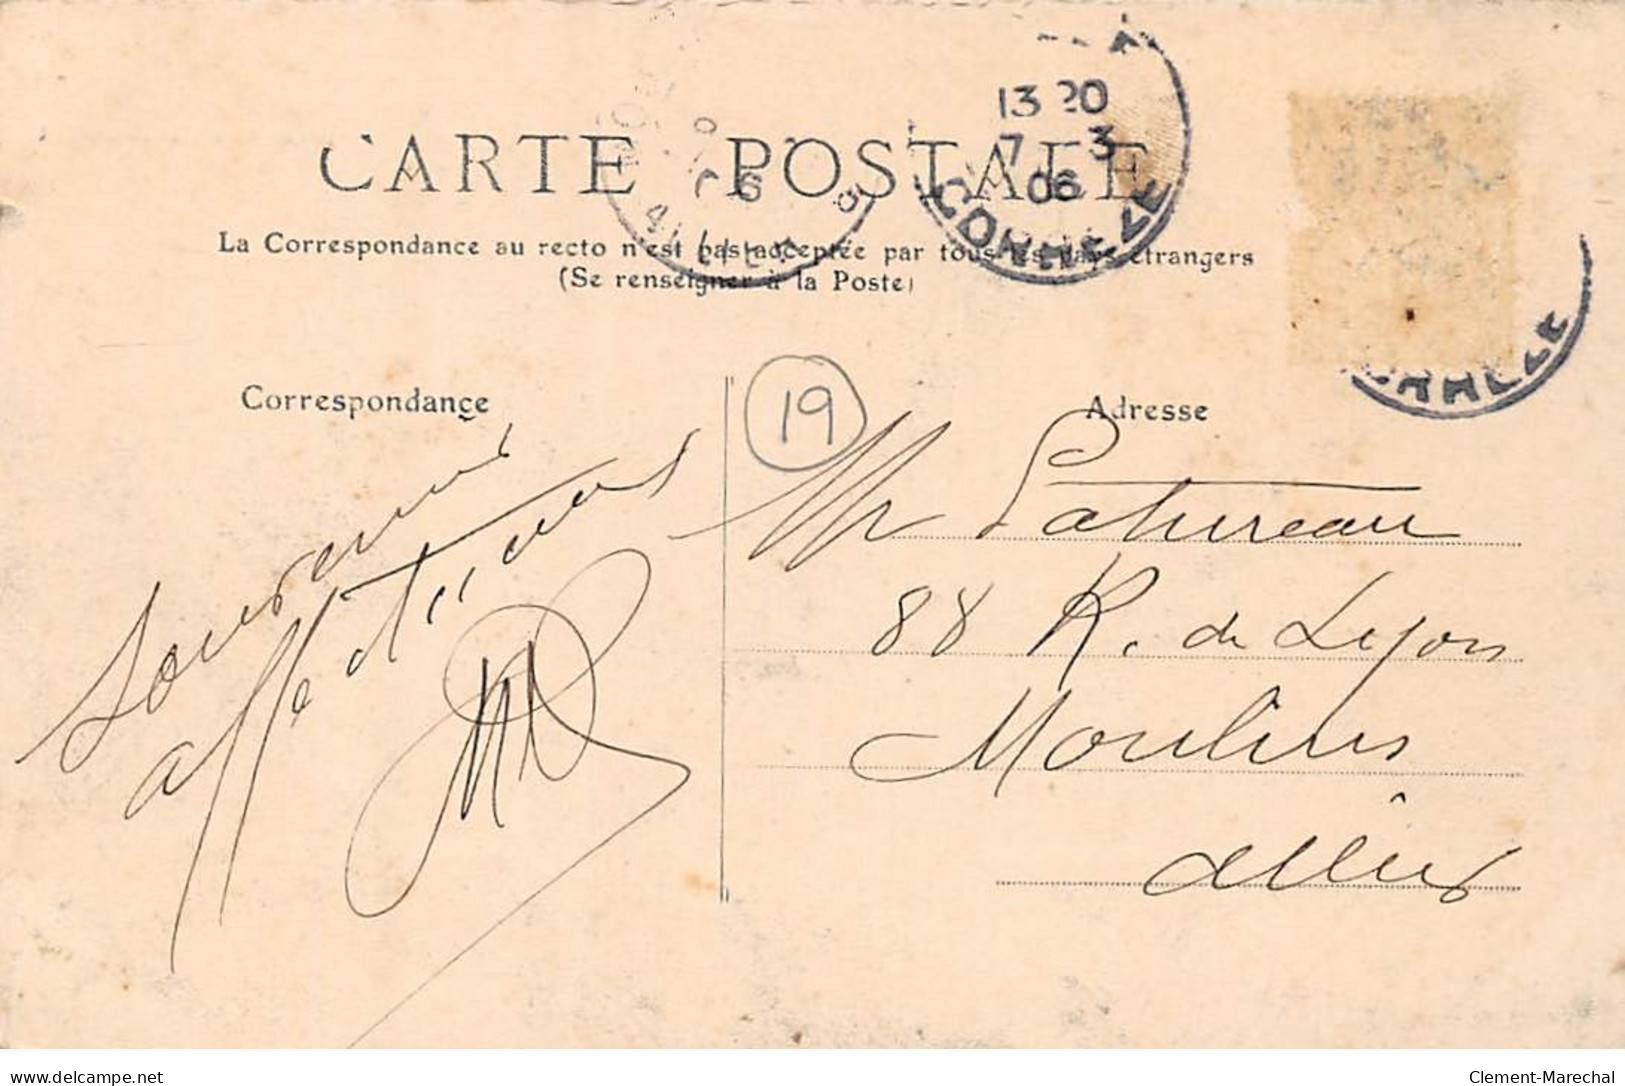 CARTE POSTALE
La Correspondance au recto n'est pas acceptée par tous les pays étrangers
(Se renseigner à la Poste)
13 20
7 3
06
CORREZE
Correspondance
Adresse
19
Souvenirs
affectueux
Mr Patureau
88 R. de Lyon
Moulins
Allier
delcampe.net
Clement-Marechal